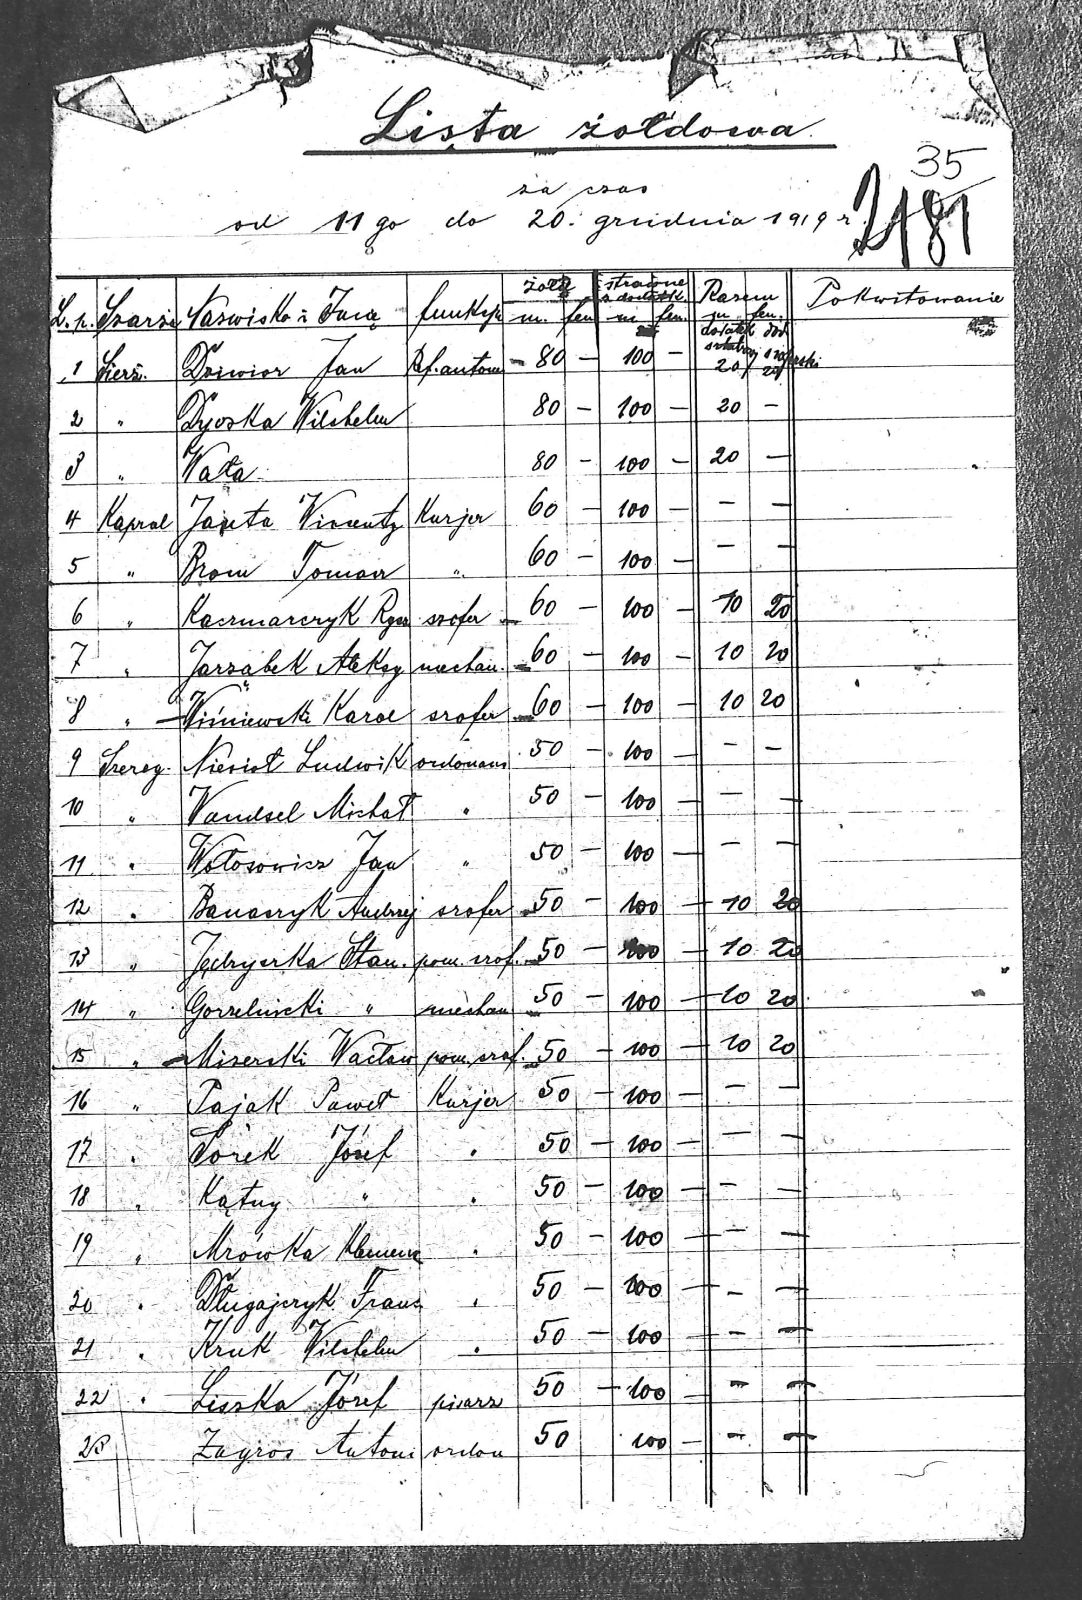 Lista żołdowa
35
za czas
od 11go do 20. grudnia 1919 r.
2181
L.p. Szarża Nazwisko i Imię funkcja żołd m. fen strawne z dodatk. m fen. Razem m fen. Pokwitowanie
dodatek dod.
sztabowy szoferski
1 Sierż. Dziwior Jan Ref. autom - 80 - 100 - 20 20
2 " Dyoska Wilchelm 80 - 100 - 20 -
3 " Wata 80 - 100 - 20 -
4 Kapral Jaźeta Wincenty Kurjer 60 - 100 - - -
5 " Brom Tomasz " 60 - 100 - - -
6 " Kaczmarczyk Rysz szofer 60 - 100 - 10 20
7 " Jarząbek Aleksy mechan. 60 - 100 - 10 20
8 " Wiśniewski Karol szofer 60 - 100 - 10 20
9 Szereg. Niesiot Ludwik ordonans 50 - 100 - - -
10 " Wandsel Michał " 50 - 100 - - -
11 " Wołosowicz Jan " 50 - 100 - - -
12 " Banaszyk Andrzej szofer 50 - 100 - 10 20
13 " Jędryczka Stan. pom. szof. 50 - 100 - 10 20
14 " Gorzeliński " mechan 50 - 100 - 10 20
15 " Miserski Wacław pom. szof. 50 - 100 - 10 20
16 " Pająk Paweł Kurjer 50 - 100 - - -
17 " Józef " 50 - 100 - - -
18 " Kątny " " 50 - 100 - - -
19 " Mrówka Klemens " 50 - 100 - - -
20 " Długajczyk Franc " 50 - 100 - - -
21 " Kruk Wilchelm " 50 - 100 - - -
22 " Liszka Józef pisarz 50 - 100 - - -
23 Zagros Antoni ordon 50 100 - - -